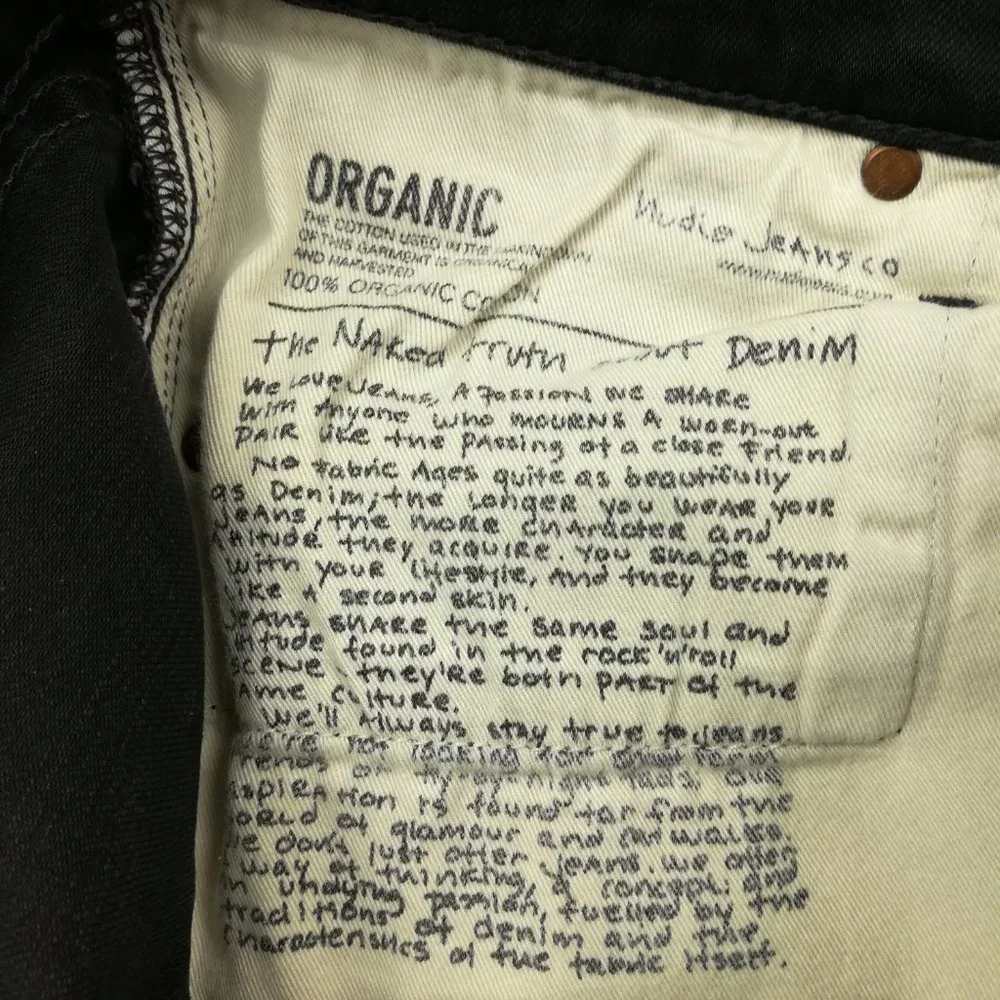 ORGANIC
THE COTTON USED IN THE MAKING
OF THIS GARMENT IS
AND HARVESTED
100% ORGANIC
Nudie Jeans co
the NAKed Truth DeniM
We Love Jeans, A Passion we SHARe
With Anyone who mouRNS A worn-out
PAIR Like the PAssing of a close Friend.
No Fabric Ages quite as beautifully
as Denim; the Longer you WEAR your
JeAns, the more CHARACTER and
they acquire. You Shape them
With your Lifestyle, And they become
like A second skin.
JeAns SHARe the same soul and
found in the rock'n'roll
SCENE they're both PART of the
culture.
We'll Always stay true to jeans.
We're not looking for
or fly-by-night fads. Our
is found far from the
of glamour and catwalks.
We don't just offer jeans. We offer
way of thinking, a concept and
undying passion, fuelled by the
traditions of denim and the
characteristics of the fabric itself.